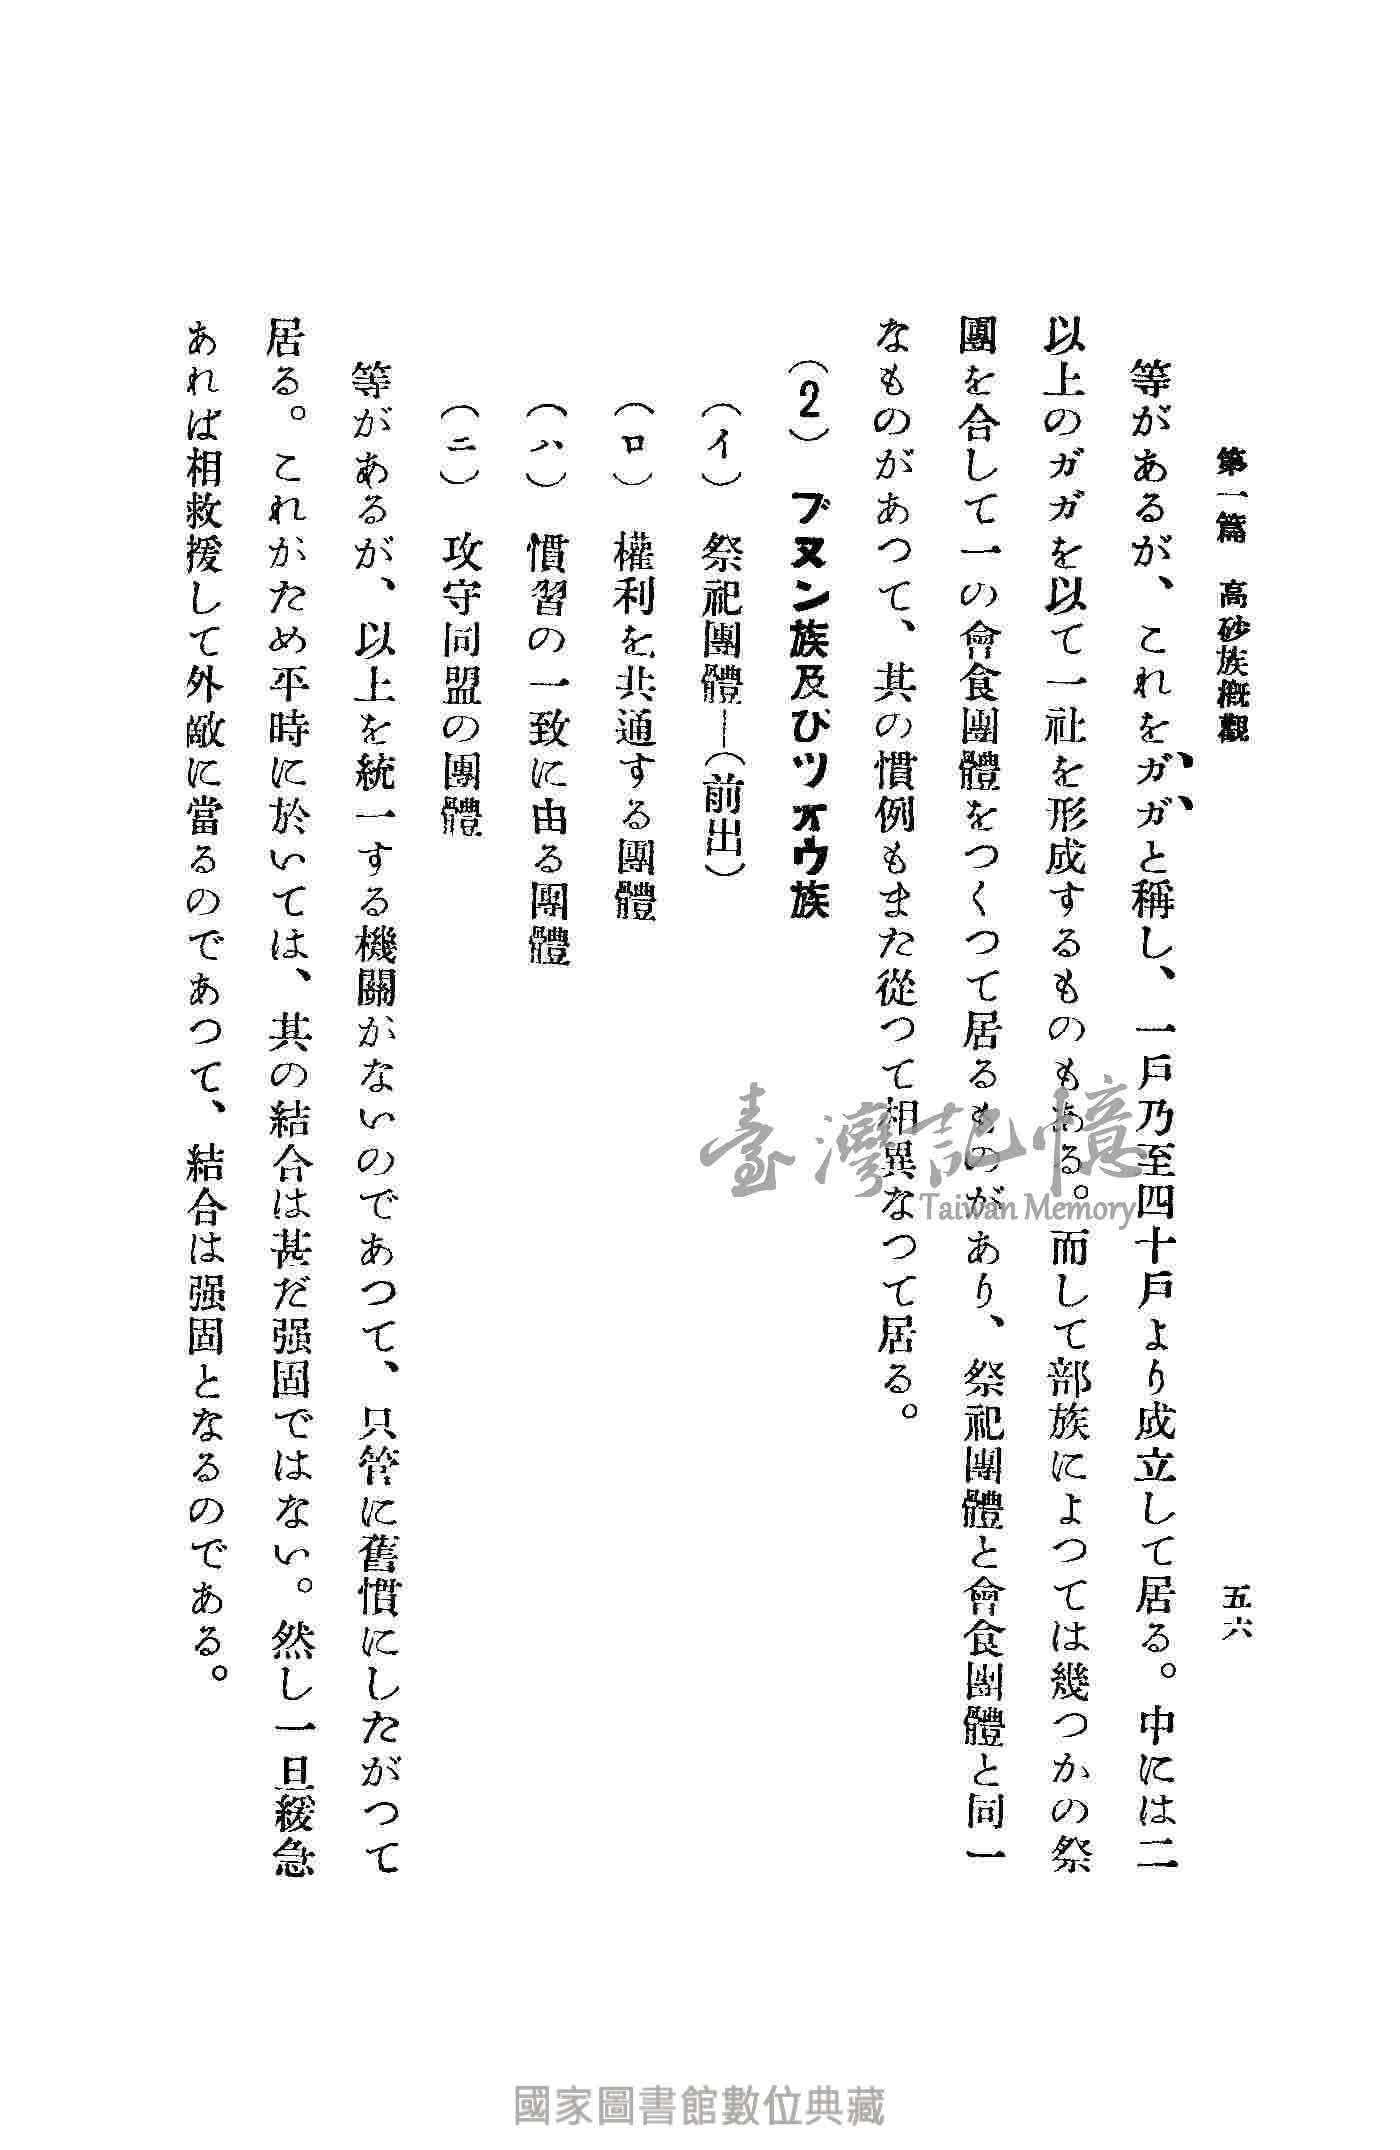 第一篇　高砂族概觀
五六
等があるが、これをガガと稱し、一戶乃至四十戶より成立して居る。中には二
以上のガガを以て一社を形成するものもある。而して部族によつては幾つかの祭
團を合して一の會食團體をつくつて居るものがあり、祭祀團體と會食團體と同一
なものがあつて、其の慣例もまた從つて相異なつて居る。
（2）　ブヌン族及びツオウ族
（イ）　祭祀團體―（前出）
（ロ）　權利を共通する團體
（ハ）　慣習の一致に由る團體
（ニ）　攻守同盟の團體
等があるが、以上を統一する機關がないのであつて、只管に舊慣にしたがつて
居る。これがため平時に於いては、其の結合は甚だ强固ではない。然し一旦緩急
あれば相救援して外敵に當るのであつて、結合は强固となるのである。
臺灣記憶
Taiwan Memory
國家圖書館數位典藏